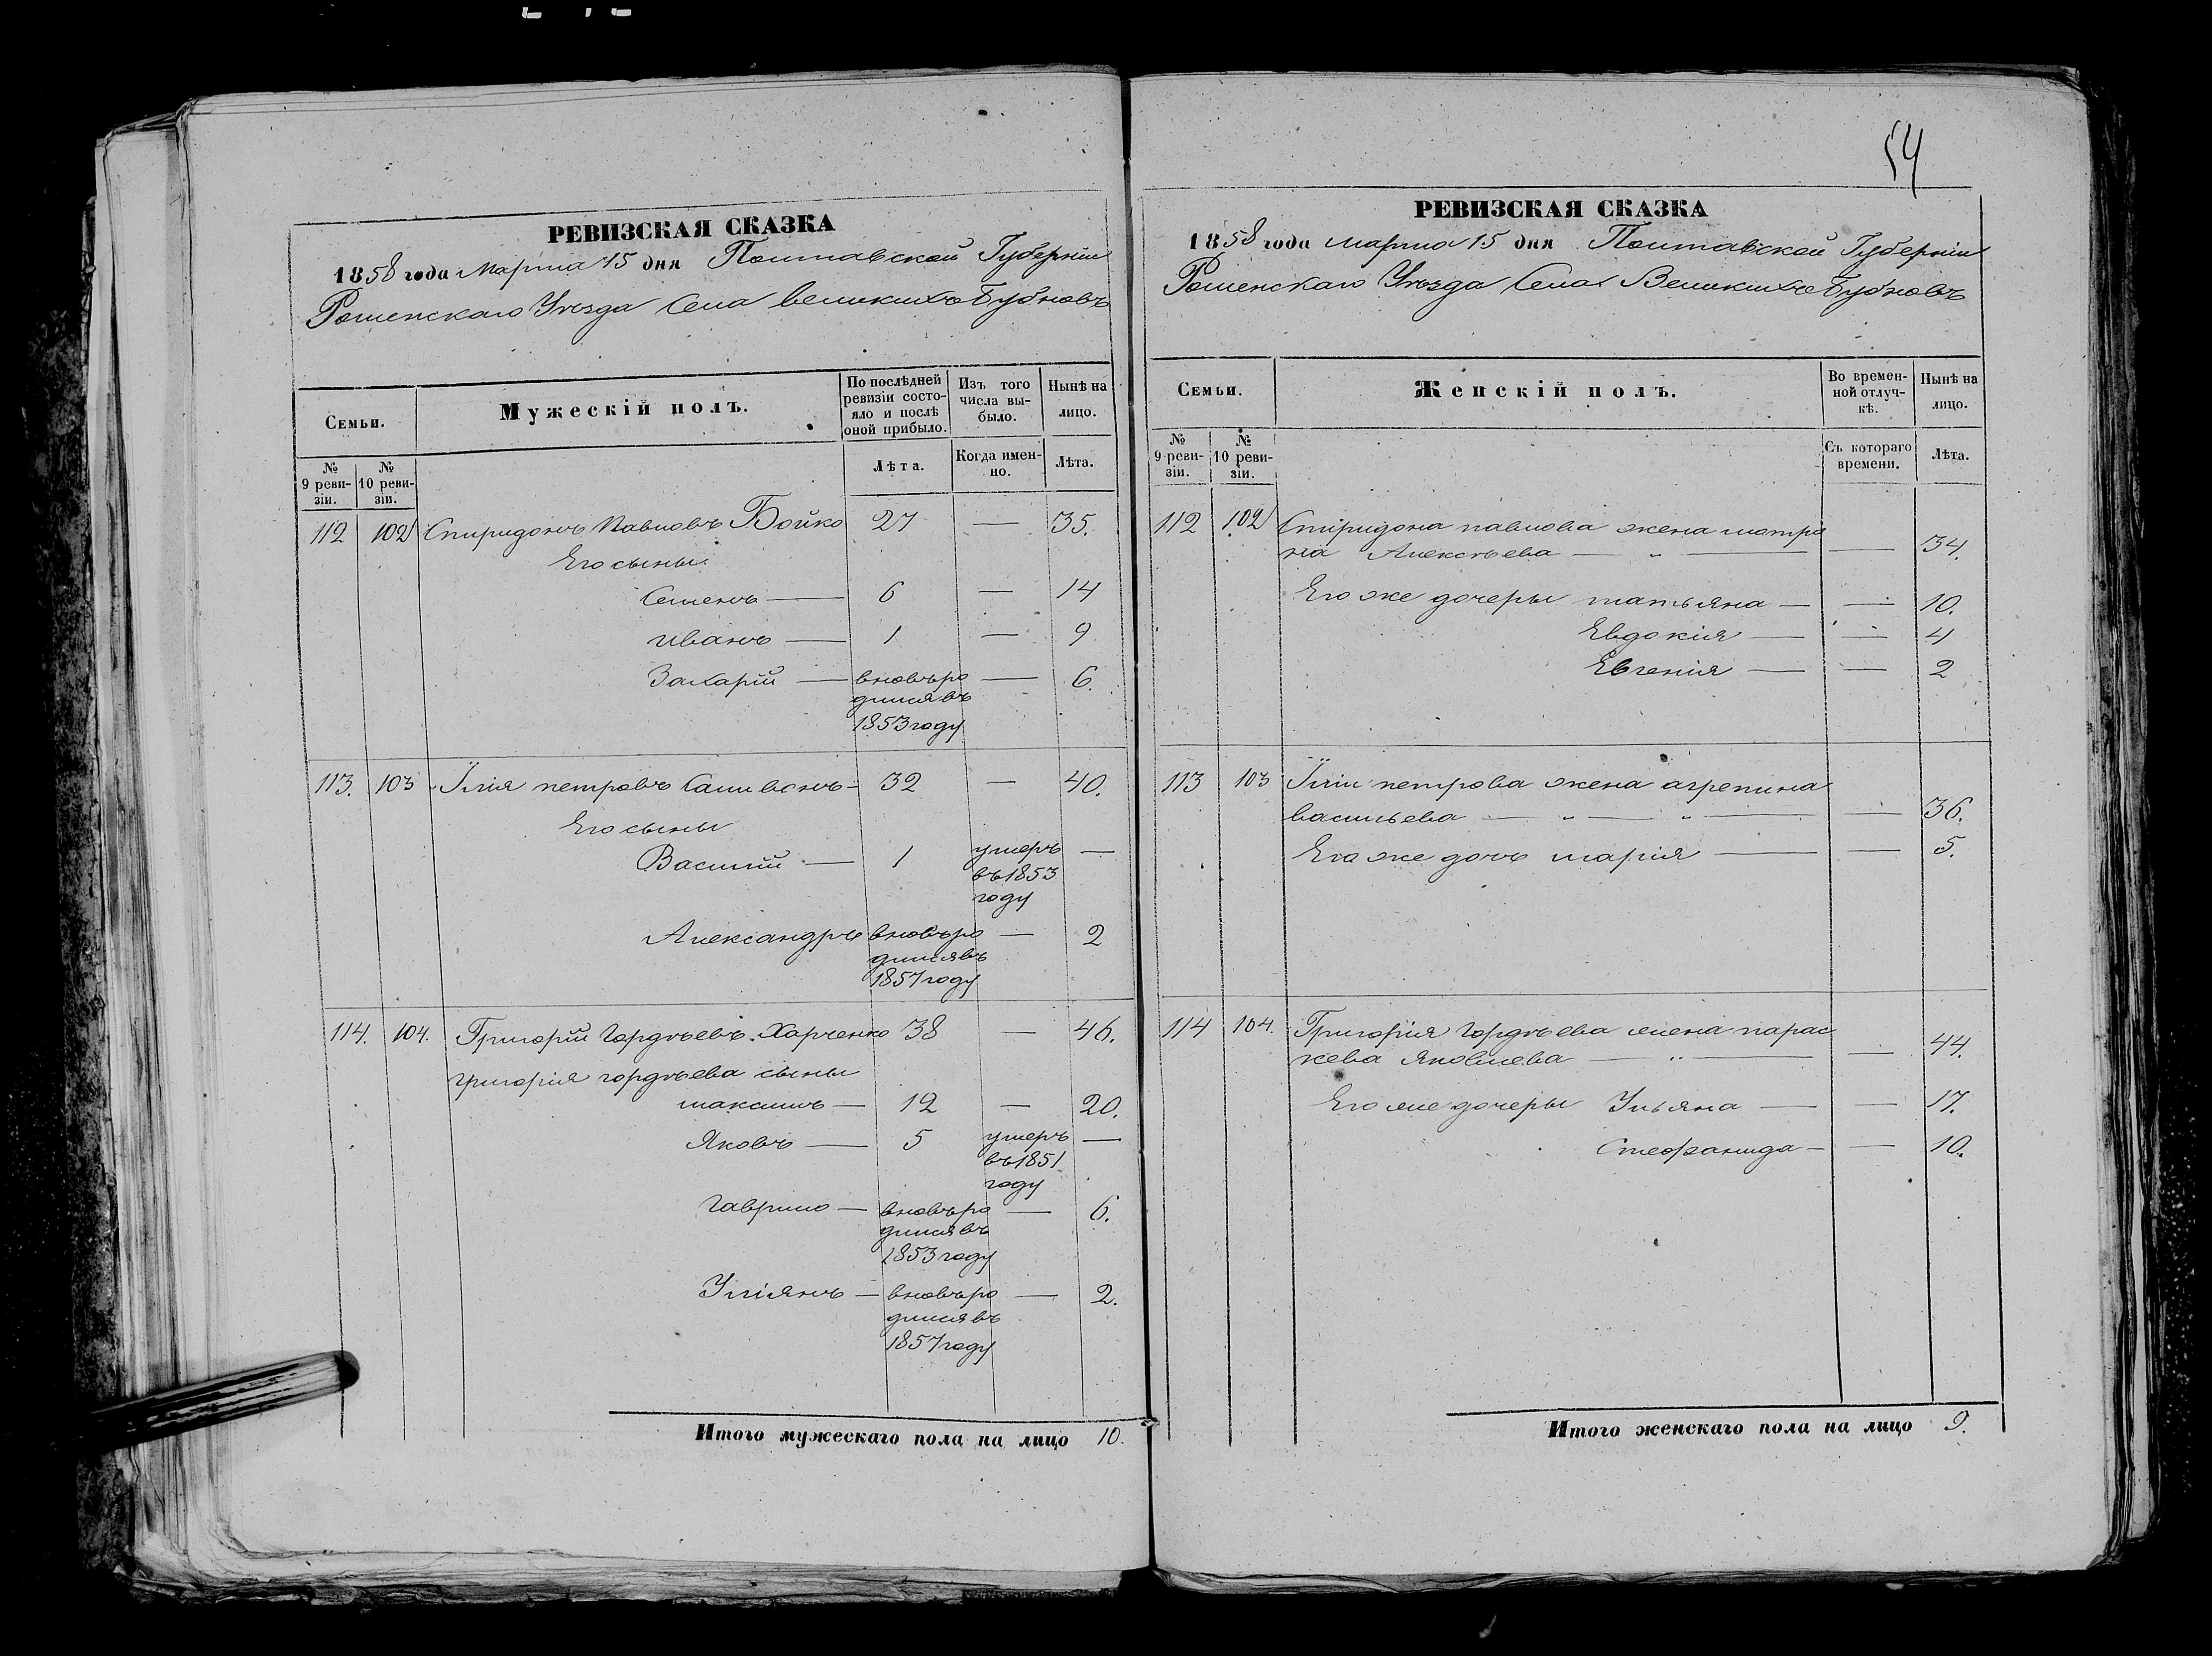 РЕВИЗСКАЯ СКАЗКА
1858 года Марта 15 дня Полтавской Губерніи
Роменскаго Уѣзда Села Великихъ Бубновъ
Семьи.
Мужескій полъ.
По послѣдней ревизіи состояло и послѣ оной прибыло.
Изъ того числа выбыло.
Нынѣ на лицо.
№ 9 ревизіи.
№ 10 ревизіи.
Лѣта.
Когда именно.
Лѣта.
112 102 Спиридонъ Павловъ Бойко 27 — 35.
Его сыны
Семенъ — 6 — 14
Иванъ — 1 — 9
Захарій — вновь ро — 6.
дился въ
1853 году
113. 103 Илія петровъ Саливонъ — 32 — 40.
Его сыны
Василій — 1 умеръ —
въ 1853
году
Александръ вновь ро — 2
дился въ
1857 году
114. 104. Григорій Гордѣевъ Харченко 38 — 46.
григорія гордѣева сыны
максимъ — 12 — 20.
Яковъ — 5 умеръ —
въ 1851
году
Гаврило — вновь ро — 6.
дился въ
1853 году
Уліянъ — вновь ро — 2.
дился въ
1857 году
Итого мужескаго пола на лицо 10.
54
РЕВИЗСКАЯ СКАЗКА
1858 года марта 15 дня Полтавской Губерніи
Роменскаго Уѣзда Села Великихъ Бубновъ
Семьи.
Женскій полъ.
Во временной отлучкѣ.
Нынѣ на лицо.
№ 9 ревизіи.
№ 10 ревизіи.
Съ котораго времени.
Лѣта.
112 102 Спиридона павлова жена матро
на Алексѣева — " — — 34.
Его же дочеры татьяна — — 10.
Евдокія — — 4
Евгенія — — 2
113 103 Иліи петрова жена агрепина
васильева — " — " — — 36.
Его же дочь марія — — 5.
114 104. Григорія Гордѣева жена парас
кева Яковлева — " — — 44.
Его же дочеры Ульяна — — 17.
Стефанида — — 10.
Итого женскаго пола на лицо 9.